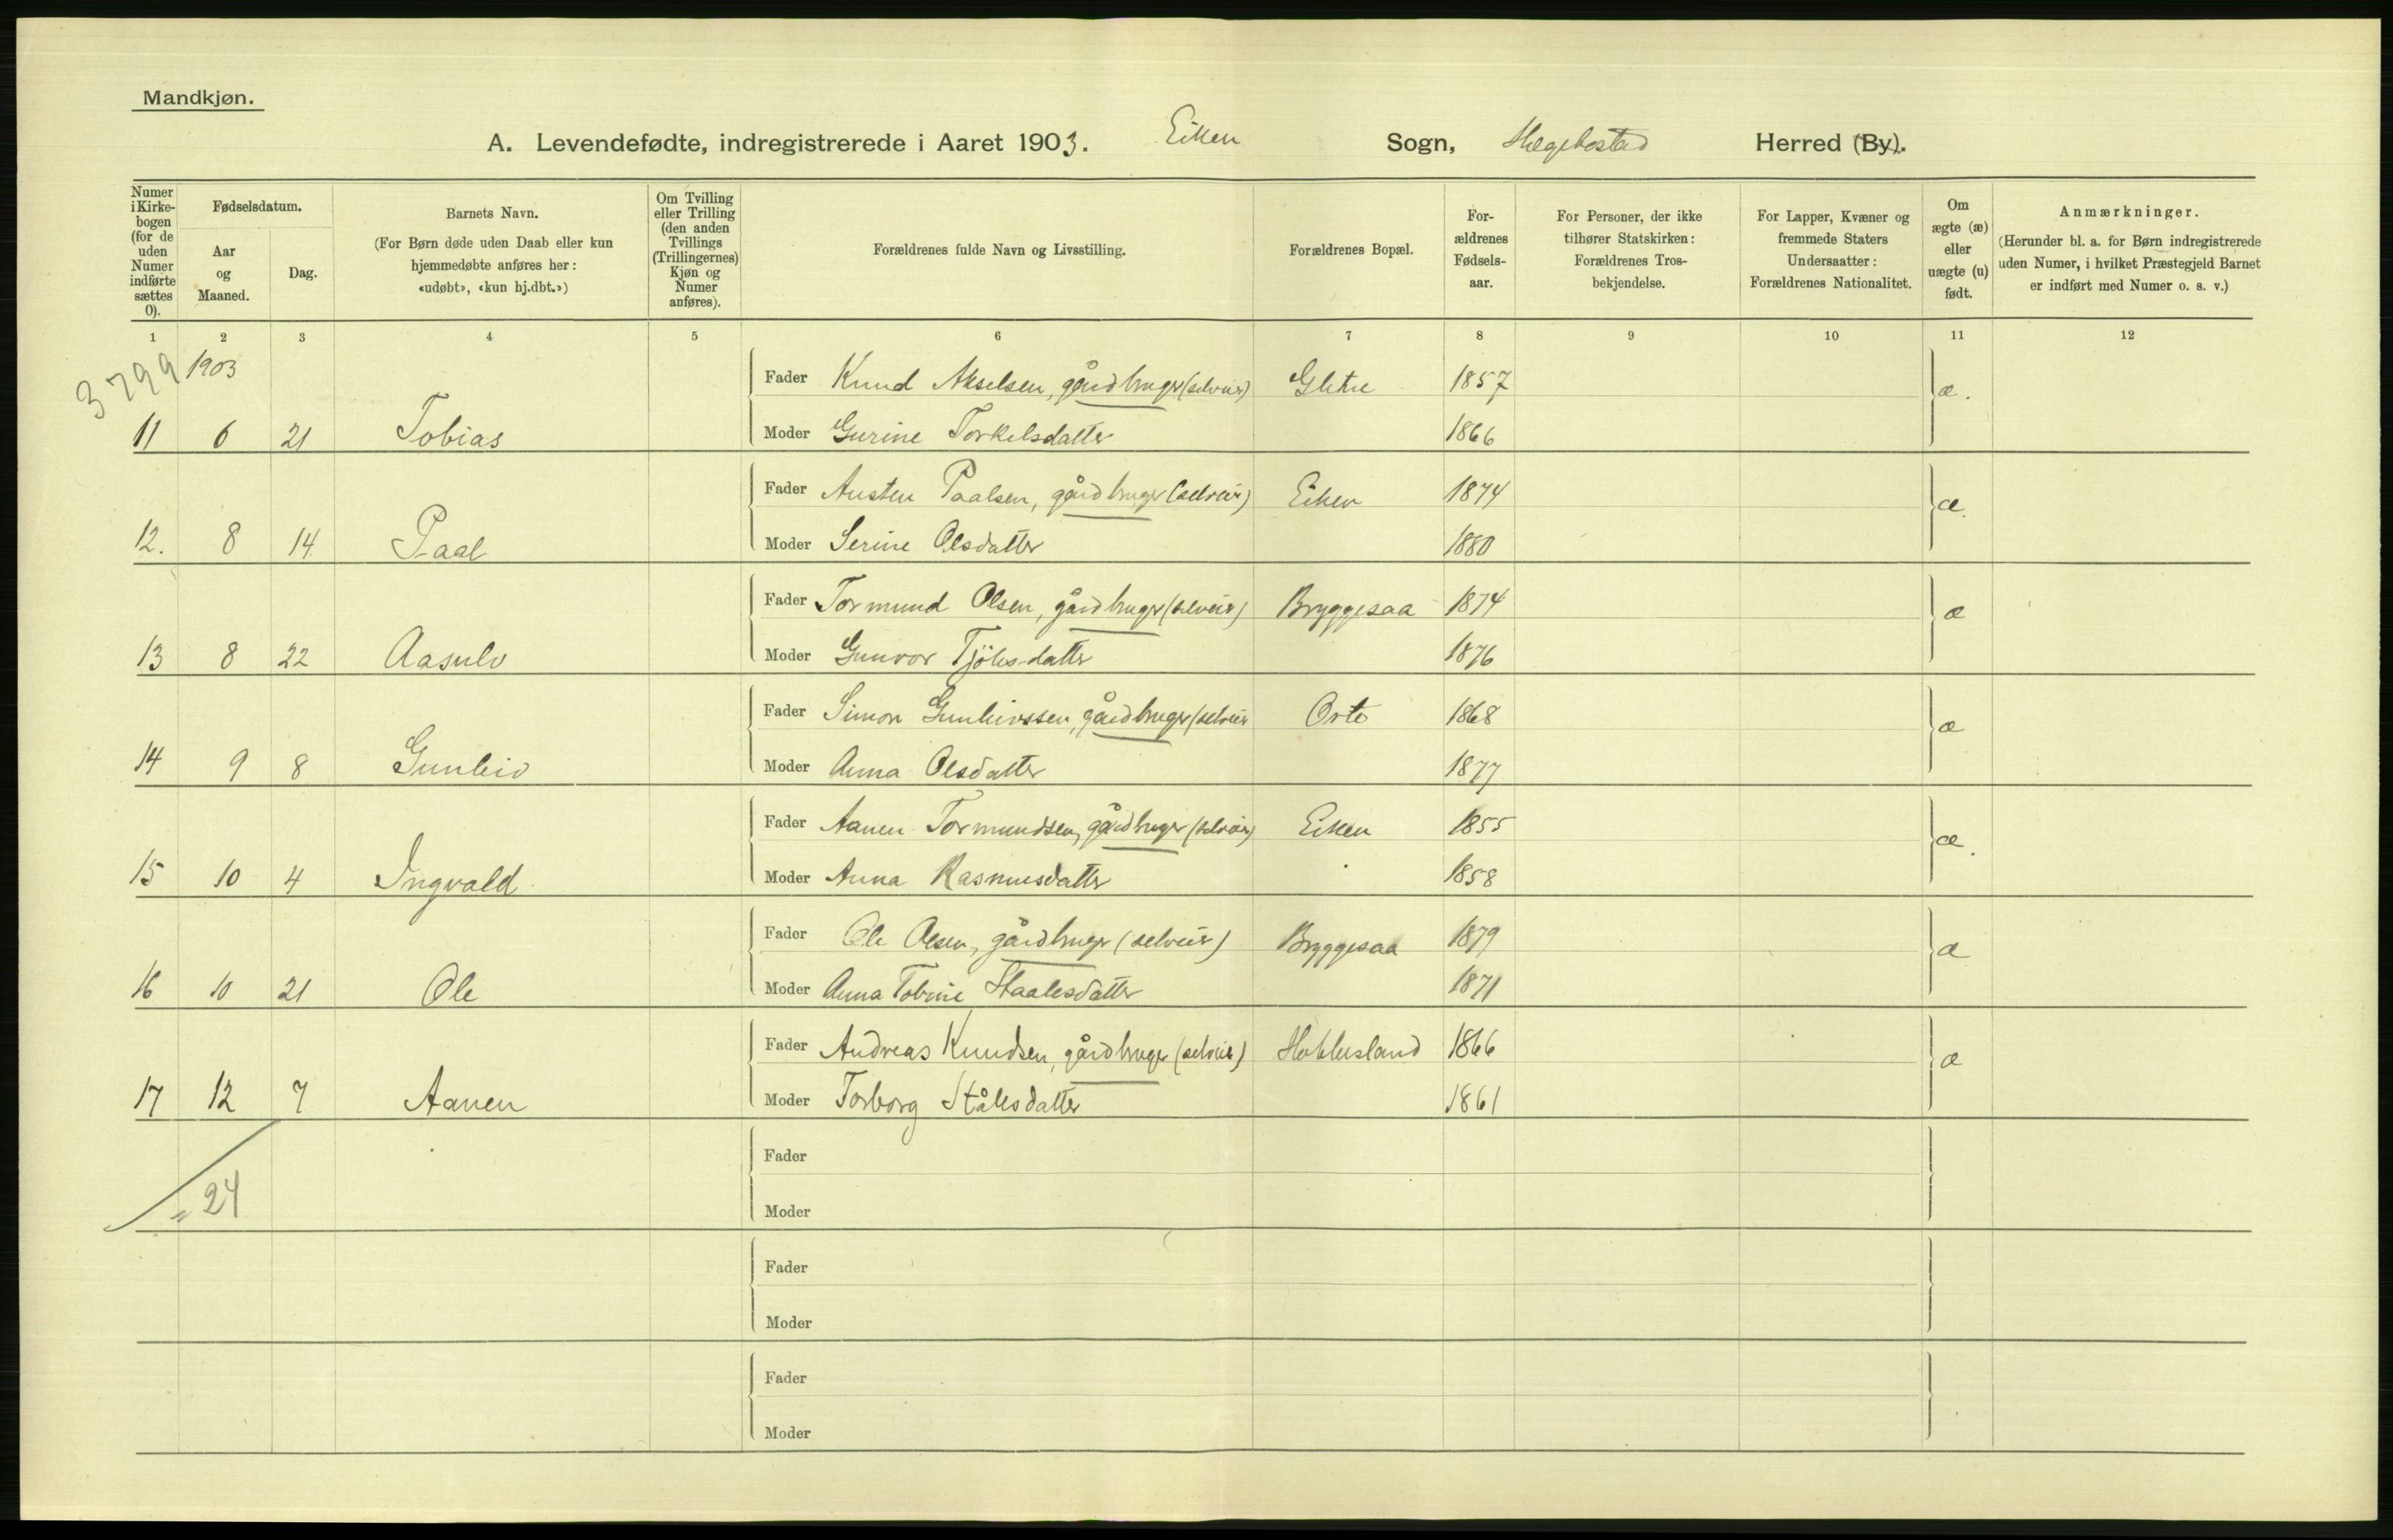 Mandkjøn.
A. Levendefødte, indregistrerede i Aaret 1903. Eiken Sogn, Hægebostad Herred (By).
Numer i Kirke-bogen (for de uden Numer indførte sættes 0).
Fødselsdatum.
Aar og Maaned.
Dag.
Barnets Navn.
(For Børn døde uden Daab eller kun hjemmedøbte anføres her: «udøbt», «kun hj.dbt.»)
Om Tvilling eller Trilling (den anden Tvillings (Trillingernes) Kjøn og Numer anføres).
Forældrenes fulde Navn og Livsstilling.
Forældrenes Bopæl.
For-ældrenes Fødsels-aar.
For Personer, der ikke tilhører Statskirken: Forældrenes Tros-bekjendelse.
For Lapper, Kvæner og fremmede Staters Undersaatter: Forældrenes Nationalitet.
Om ægte (æ) eller uægte (u) født.
Anmærkninger.
(Herunder bl. a. for Børn indregistrerede uden Numer, i hvilket Præstegjeld Barnet er indført med Numer o. s. v.)
1 2 3 4 5 6 7 8 9 10 11 12
3799 1903
Fader Knud Akselsen, gårdbruger (selveier) 1857 æ.
11 6 21 Tobias Moder Gurine Torkelsdatter 1866
Fader Austen Paalsen, gårdbruger (selveier) Eiken 1874 æ.
12. 8 14 Paal Moder Serine Olsdatter 1880
Fader Tormund Olsen, gårdbruger (selveier) Bryggesaa 1874 æ
13 8 22 Aasulv Moder Gunvor Tjölsdatter 1876
Fader Simon Gunleivssen, gårdbruger (selveier Orte 1868 æ
14 9 8 Gunleiv Moder Anna Olsdatter 1877
Fader Aanen Tormundsen, gårdbruger (selveier) Eiken 1855 æ.
15 10 4 Ingvald Moder Anna Rasmusdatter 1858
Fader Ole Olsen, gårdbruger (selveier) Bryggesaa 1879 æ
16 10 21 Ole Moder Anna Tobine Staalesdatter 1871
Fader Andreas Knudsen, gårdbruger (selveier) 1866 æ
17 12 7 Aanen Moder Torborg Stålesdatter 1861
Fader
" 24
Moder
Fader
Moder
Fader
Moder